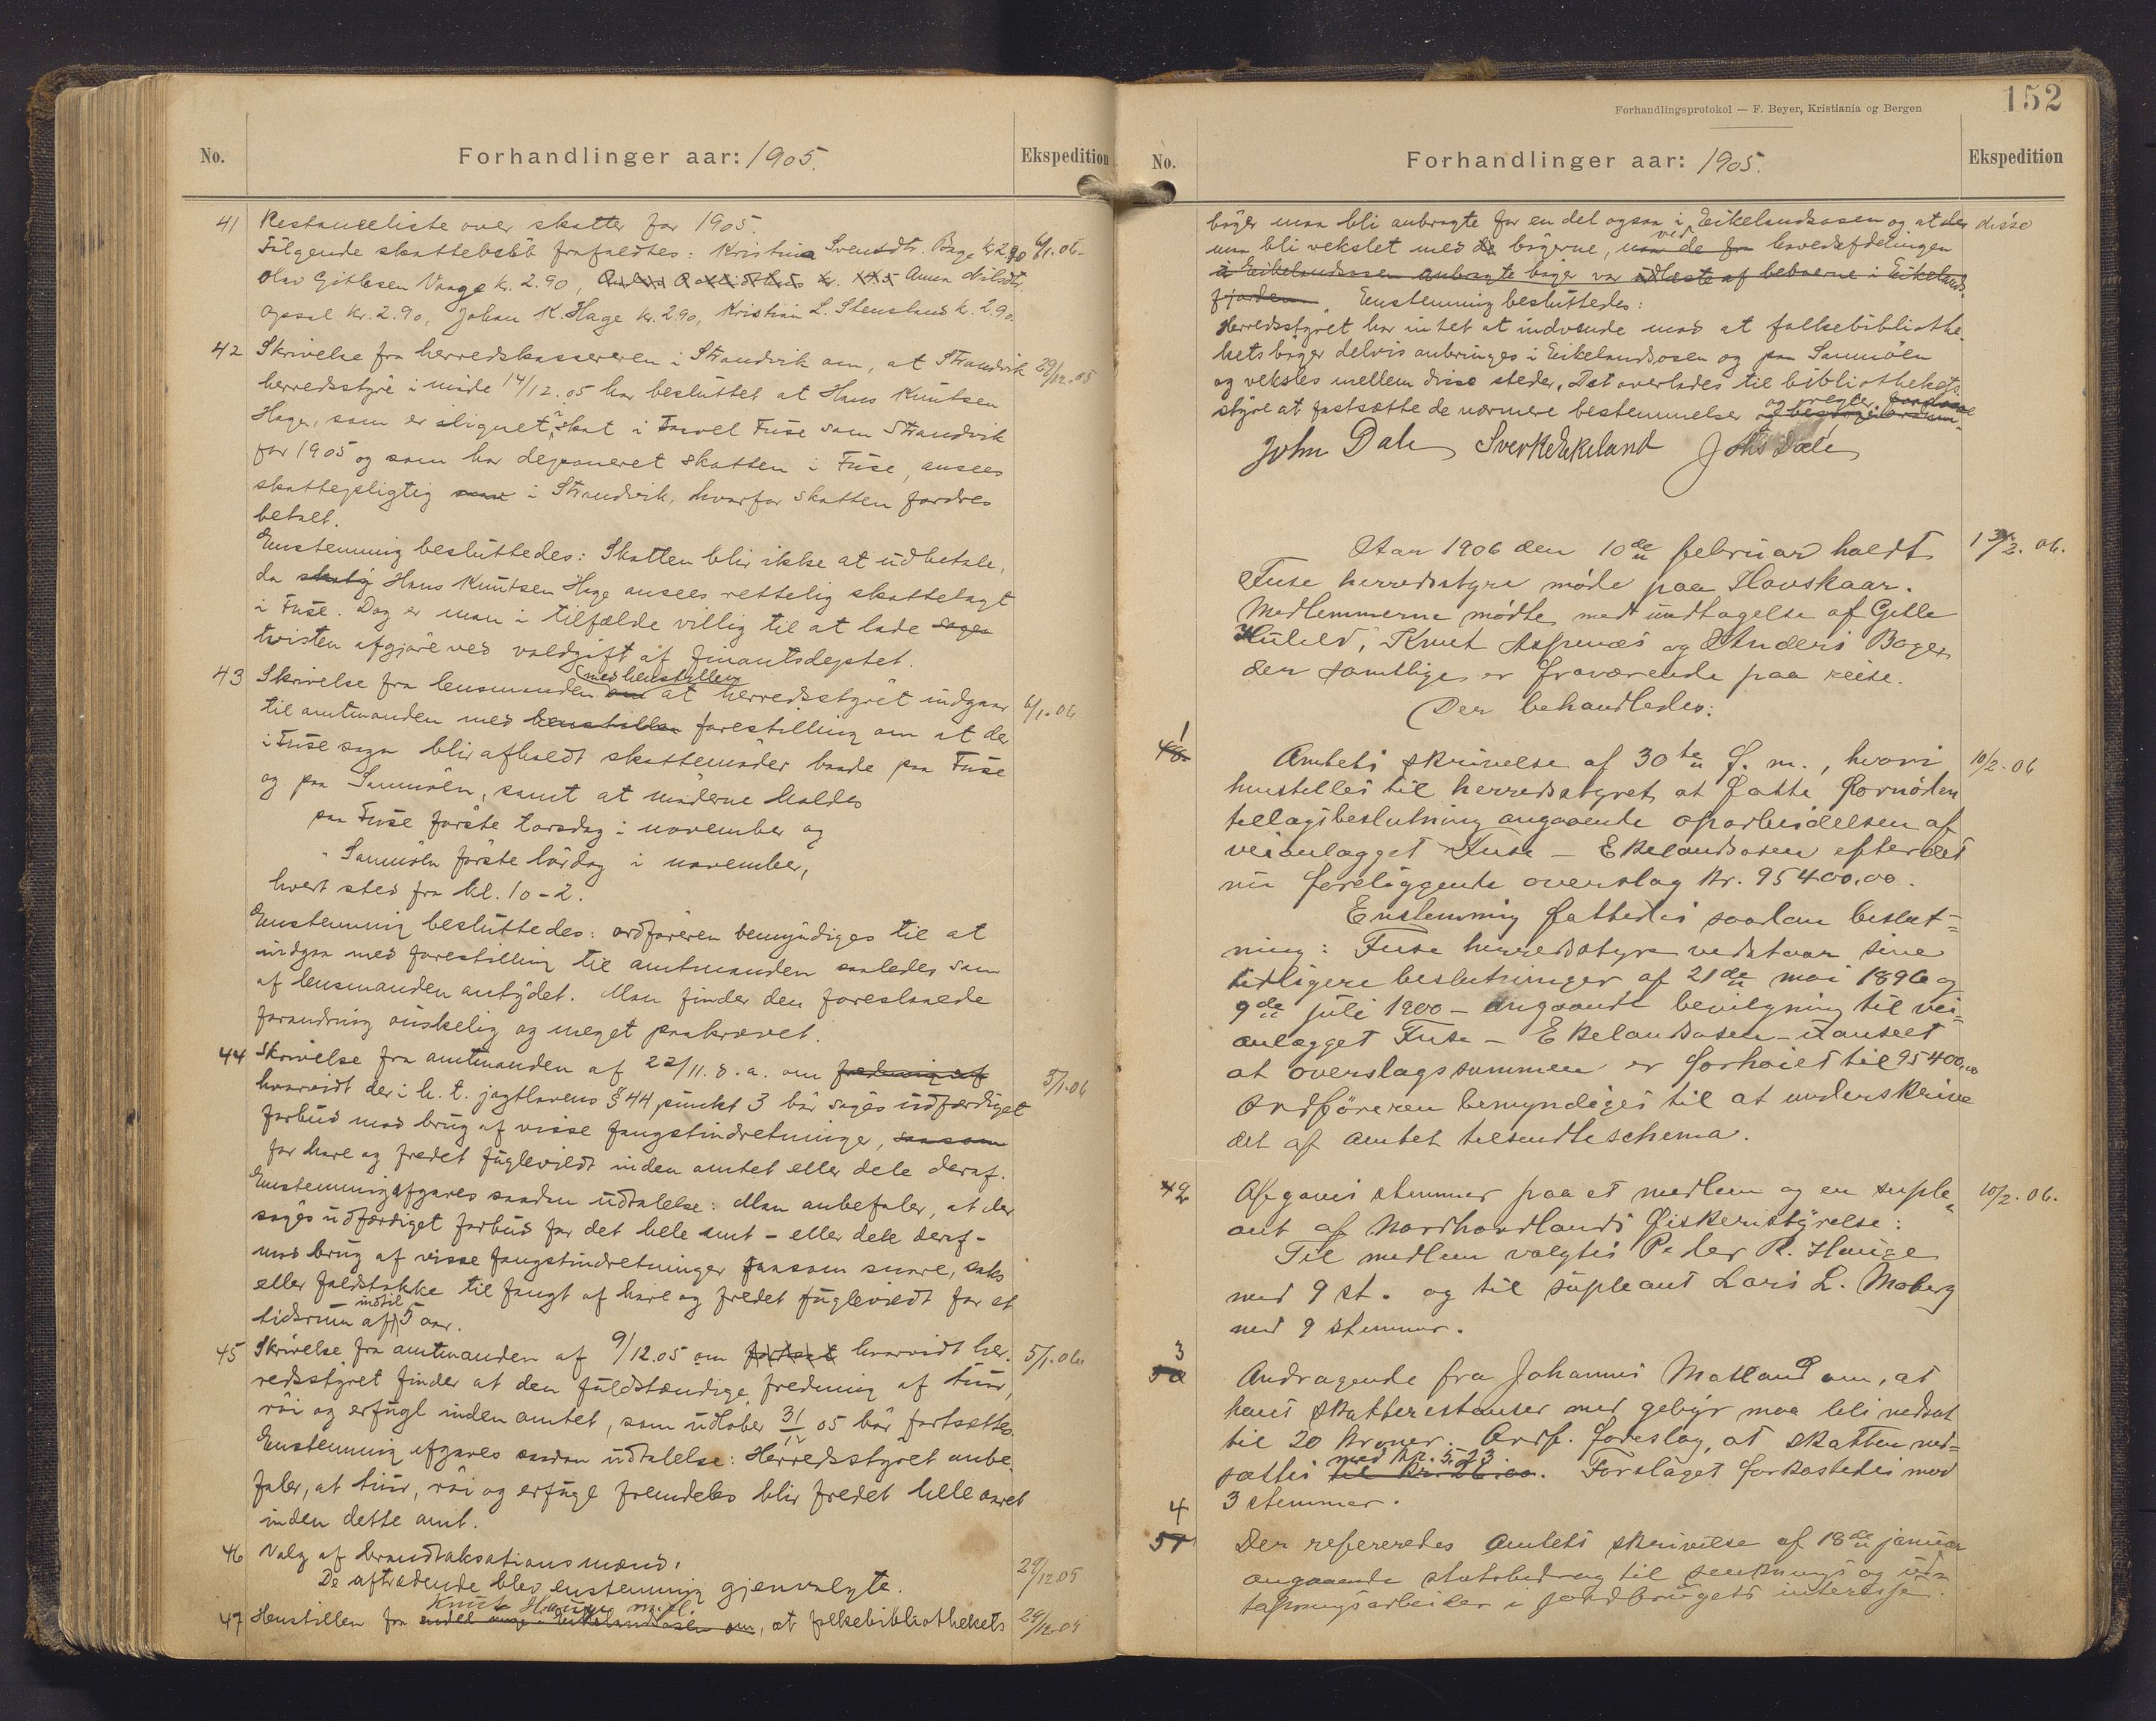 No. Forhandlinger aar: 1905. Ekspedition
41 Restanceliste over skatter for 1905.
Følgende skattebeløb frafaldtes: Kristina Svensdtr. Bage kr 2.90 6/1.06.
Olav Gitlesen Vaage kr. 2.90, Anna Nilsdtr.
Opsal kr. 2.90, Johan K. Hage kr. 2.90, Kristian L. Stensland kr. 2.90.
42 Skrivelse fra herredskassereren i Strandvik om, at Strandvik 29/12.05
herredsstyre i møde 14/12.05 har besluttet at Hans Knutsen
Hage, som er ilignet skat i saavel Fuse som Strandvik
for 1905 og som har deponeret skatten i Fuse, ansees
skattepligtig i Strandvik, hvorfor skatten fordres
betalt.
Enstemmig besluttedes: Skatten blir ikke at udbetale,
da Hans Knutsen Hage ansees rettelig skattelagt
i Fuse. Dog er man i tilfælde villig til at lade sagen
tvisten afgjøre ved voldgift af finantsdeptet.
(med henstillen
43 Skrivelse fra lensmanden om at herredsstyret indgaar 6/1.06
til amtmanden med henstillen forestilling om at der
i Fuse sogn blir afholdt skattemøder baade paa Fuse
og paa Sunmøen, samt at møderne holdes
paa Fuse første torsdag i november og
" Sunmøen første lørdag i november,
hvert sted fra kl. 10-2.
Enstemmig besluttedes: ordføreren bemyndiges til at
indgaa med forestilling til amtmanden saaledes som
af lensmanden antydet. Man finder den foreslaaede
forandring ønskelig og meget paakrævet.
44 Skrivelse fra amtmanden af 22/11. d. a. om fredning af 5/1.06
hvorvidt der i h. t. jagtlovens § 44 punkt 3 bør søges udfærdiget
forbud mod brug af visse fangstindretninger, saasom
for hare og fredet fuglevildt inden amtet eller dele deraf.
Enstemmig afgaves saadan udtalelse: Man anbefaler, at der
søges udfærdiget forbud for det hele amt - eller dele deraf -
mod brug af visse fangstindretninger saasom snare, saks
eller faldstokke til fangst af hare og fredet fuglevildt for et
indtil
tidsrum af 5 aar.
45 Skrivelse fra amtmanden af 9/12.05 om hvorvidt her- 5/1.06.
redsstyret finder at den fuldstændige fredning af tiur,
røi og erfugl inden amtet, som udløber 31/12 05 bør fortsættes.
Enstemmig afgaves saadan udtalelse: Herredsstyret anbe-
faler, at tiur, røi og erfugl fremdeles blir fredet hele aaret
inden dette amt.
46 Valg af brandtaksationsmænd. 29/12.05
De aftrædende blev enstemmig gjenvalgte.
Knut Hauge m.fl.
47 Henstillen fra om, at folkebibliothekets 29/12.05
Forhandlingsprotokol — F. Beyer, Kristiania og Bergen
152
No. Forhandlinger aar: 1905. Ekspedition
bøger maa bli anbragte for en del ogsaa i Eikelandsosen og at der disse
maa bli vekslet med bøgerne, ved de fra hovedafdelingen
i Eikelandsosen anbragte bøger var udlæste af beboerne i Eikelands-
fjorden. Enstemmig besluttedes:
Herredsstyret har intet at indvende mod at folkebibliothe-
kets bøger delvis anbringes i Eikelandsosen og paa Sunmøen
og veksles mellem disse steder. Det overlades til bibliothekets
og regler.
styre at fastsætte de nærmere bestemmelser
John Dale Sverke Ekeland Johs Dale
Aar 1906 den 10de februar holdt 13/2. 06.
Fuse herredsstyre møde paa Havskaar.
Medlemmerne mødte med undtagelse af Gitle
Huleld, Knut Aspenæs og Anders Bage,
der samtlige er fraværende paa reise.
Der behandledes:
1
48 Amtets skrivelse af 30te f. m., hvori 10/2.06
henstilles til herredsstyret at fatte fornøden
tillægsbeslutning angaaende oparbeidelsen af
veianlægget Fuse – Ekelandsosen efter det
nu foreliggende overslag kr. 95400,00.
Enstemmig fattedes saadan beslut-
ning: Fuse herredsstyre vedstaar sine
tidligere beslutninger af 21de mai 1896 og
9de juli 1900 – angaaende bevilgning til vei-
anlægget Fuse – Ekelandsosen – uanseet
at overslagssummen er forhøiet til 95400,00
Ordføreren bemyndiges til at underskrive
det af Amtet tilsendte schema.
2 Afgaves stemmer paa et medlem og en suple- 10/2. 06.
ant af Nordhordlands fiskeristyrelse:
Til medlem valgtes Peder R. Hauge
med 9 st. og til supleant Lars L. Moberg
med 9 stemmer.
3
50 Andragende fra Johannes Matland om, at
hans skatterestanser med gebyr maa bli nedsat
til 20 kroner. Ordf. foreslog, at skatten ned-
med kr. 5.23
sættes til kr. 26.00. Forslaget forkastedes mod
4 3 stemmer.
51 Der refereredes Amtets skrivelse af 18de januar
angaaende statsbidrag til senknings og ud-
tapningsarbeider i jordbrugets interesse